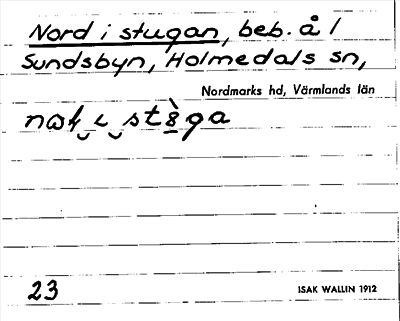 Nord i stugan, beb. å 1
Sundsbyn, Holmedals sn,
Nordmarks hd, Värmlands län
23
ISAK WALLIN 1912